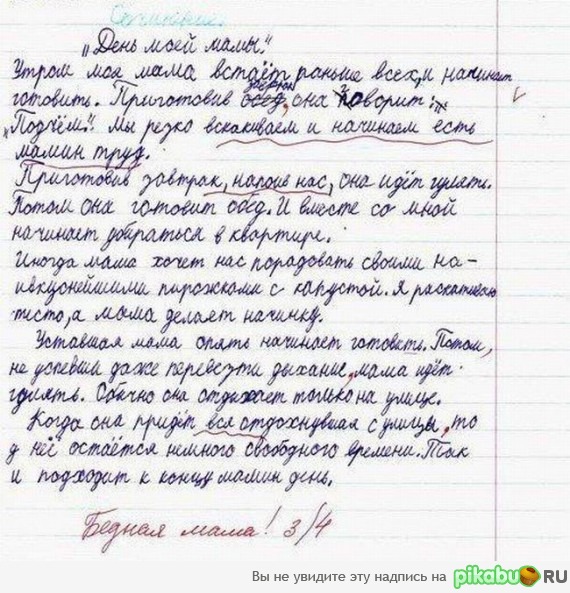 Сочинение.
„День моей мамы."
Утром моя мама встаёт раньше всех, и начинает
завтрак
готовить. Приготовив обед, она говорит:
„Подъём". Мы резко вскакиваем и начинаем есть
мамин труд.
Приготовив завтрак, напоив нас, она идёт гулять.
Потом она готовит обед. И вместе со мной
начинает убираться в квартире.
Иногда мама хочет нас порадовать своими на-
ивкуснейшими пирожками с капустой. Я раскатываю
тесто, а мама делает начинку.
Уставшая мама опять начинает готовить. Потом,
не успевши даже перевезти дыхание, мама идёт
гулять. Обычно она отдыхает только на улице.
Когда она придёт вся отдохнувшая с улицы, то
у неё остаётся немного свободного времени. Так
и подходит к концу мамин день.
Бедная мама! 3/4
Вы не увидите эту надпись на pikabu.RU